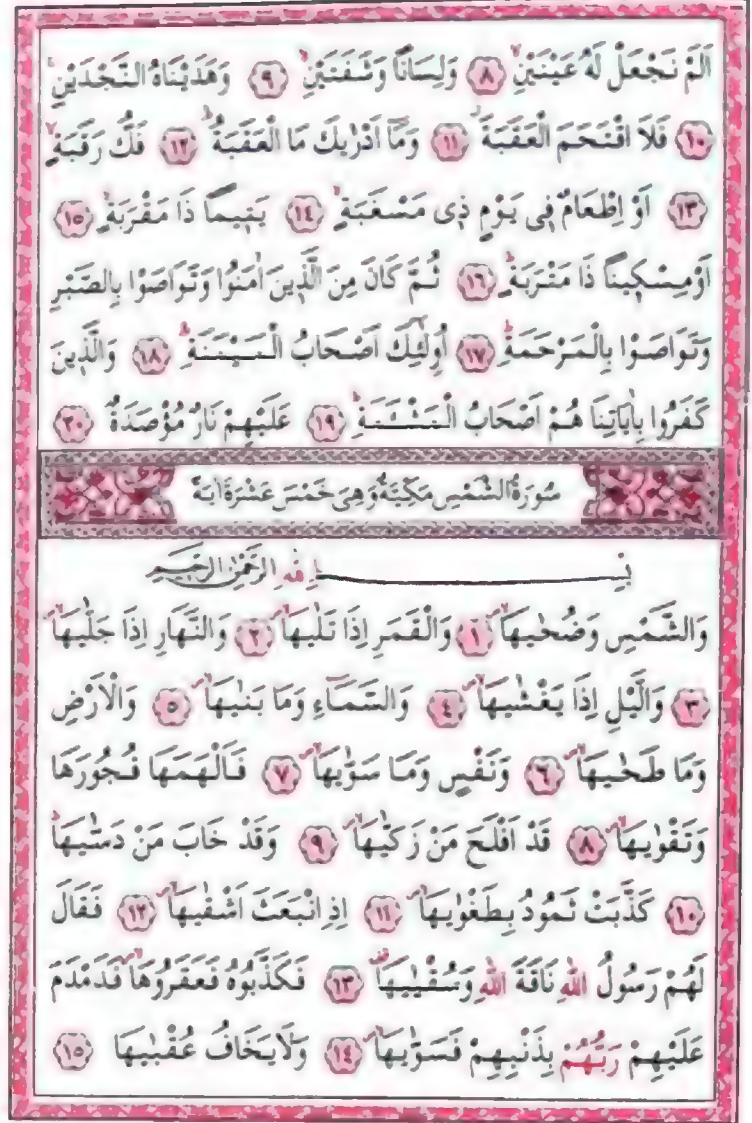 اَلَمْ نَجْعَلْ لَهُ عَيْنَيْنِۙ ﴿٨﴾ وَلِسَانًا وَشَفَتَيْنِۙ ﴿٩﴾ وَهَدَيْنَاهُ النَّجْدَيْنِۚ
﴿١٠﴾ فَلَا اقْتَحَمَ الْعَقَبَةَۘ ﴿١١﴾ وَمَٓا اَدْرٰيكَ مَا الْعَقَبَةُۜ ﴿١٢﴾ فَكُّ رَقَبَةٍۙ
﴿١٣﴾ اَوْ اِطْعَامٌ ف۪ي يَوْمٍ ذ۪ي مَسْغَبَةٍۙ ﴿١٤﴾ يَت۪يمًا ذَا مَقْرَبَةٍۙ ﴿١٥﴾
اَوْ مِسْك۪ينًا ذَا مَتْرَبَةٍۜ ﴿١٦﴾ ثُمَّ كَانَ مِنَ الَّذ۪ينَ اٰمَنُوا وَتَوَاصَوْا بِالصَّبْرِ
وَتَوَاصَوْا بِالْمَرْحَمَةِۜ ﴿١٧﴾ اُو۬لٰٓئِكَ اَصْحَابُ الْمَيْمَنَةِۜ ﴿١٨﴾ وَالَّذ۪ينَ
كَفَرُوا بِاٰيَاتِنَا هُمْ اَصْحَابُ الْمَشْـَٔمَةِۜ ﴿١٩﴾ عَلَيْهِمْ نَارٌ مُؤْصَدَةٌ ﴿٢٠﴾
سُورَةُ الشَّمْسِ مَكِّيَّةٌ وَهِيَ خَمْسَ عَشْرَةَ اٰيَةً
بِسْمِ اللّٰهِ الرَّحْمٰنِ الرَّح۪يمِ
وَالشَّمْسِ وَضُحٰيهَاۙ ﴿١﴾ وَالْقَمَرِ اِذَا تَلٰيهَاۙ ﴿٢﴾ وَالنَّهَارِ اِذَا جَلّٰيهَاۙ
﴿٣﴾ وَالَّيْلِ اِذَا يَغْشٰيهَاۙ ﴿٤﴾ وَالسَّمَٓاءِ وَمَا بَنٰيهَاۙ ﴿٥﴾ وَالْاَرْضِ
وَمَا طَحٰيهَاۙ ﴿٦﴾ وَنَفْسٍ وَمَا سَوّٰيهَاۙ ﴿٧﴾ فَاَلْهَمَهَا فُجُورَهَا
وَتَقْوٰيهَاۙ ﴿٨﴾ قَدْ اَفْلَحَ مَنْ زَكّٰيهَاۙ ﴿٩﴾ وَقَدْ خَابَ مَنْ دَسّٰيهَاۜ
﴿١٠﴾ كَذَّبَتْ ثَمُودُ بِطَغْوٰيهَاۙ ﴿١١﴾ اِذِ انْبَعَثَ اَشْقٰيهَاۙ ﴿١٢﴾ فَقَالَ
لَهُمْ رَسُولُ اللّٰهِ نَاقَةَ اللّٰهِ وَسُقْيٰيهَاۙ ﴿١٣﴾ فَكَذَّبُوهُ فَعَقَرُوهَاۙ فَدَمْدَمَ
عَلَيْهِمْ رَبُّهُمْ بِذَنْبِهِمْ فَسَوّٰيهَاۙ ﴿١٤﴾ وَلَا يَخَافُ عُقْبٰيهَا ﴿١٥﴾